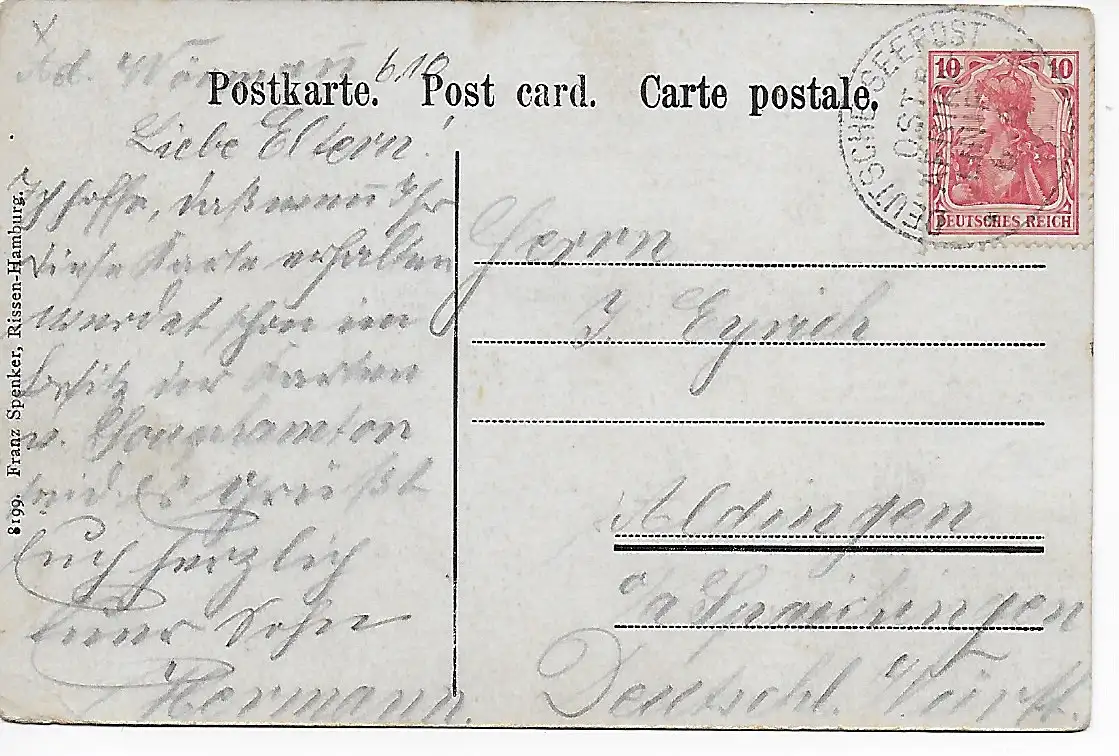 Ad. Wörmann 6.10
Postkarte. Post card. Carte postale.
Liebe Eltern!
Ich hoffe, daß wenn Ihr
diese Karte erhalten
werdet schon im
Besitz der Karten
v. Southamton
seid. Es grüßt
Euch herzlich
Euer Sohn
Hermann.
Herrn
J. Eyrich
Aldingen
o/a Spaichingen
Deutschl. Württ.
8199. Franz Spenker, Rissen-Hamburg.
DEUTSCHE SEEPOST
OST
LINIE
10 10
DEUTSCHES REICH